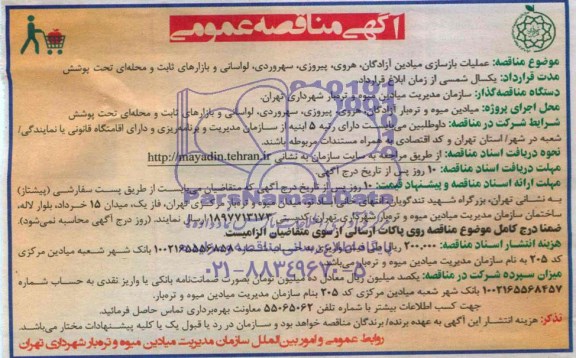 آگهی مناقصه عمومی
موضوع مناقصه: عملیات بازسازی میادین آزادگان، هروی، پیروزی، سهروردی، لواسانی و بازارهای ثابت و محله‌ای تحت پوشش
مدت قرارداد: یکسال شمسی از زمان ابلاغ قرارداد
دستگاه مناقصه‌گذار: سازمان مدیریت میادین میوه و تره‌بار شهرداری تهران
محل اجرای پروژه: میادین میوه و تره‌بار آزادگان، هروی، پیروزی، سهروردی، لواسانی و بازارهای ثابت و محله‌ای تحت پوشش
شرایط شرکت در مناقصه: داوطلبین می‌بایست دارای رتبه ۵ ابنیه از سازمان مدیریت و برنامه‌ریزی و دارای اقامتگاه قانونی یا نمایندگی/
شعبه در شهر/ استان تهران و کد اقتصادی به همراه مستندات مربوطه باشند.
نحوه دریافت اسناد مناقصه: از طریق مراجعه به سایت سازمان به نشانی http://mayadin.tehran.ir
مهلت دریافت اسناد مناقصه: ۱۰ روز پس از تاریخ درج آگهی
مهلت ارائه اسناد مناقصه و پیشنهاد قیمت: ۱۰ روز پس از تاریخ درج آگهی که متقاضیان می‌بایست از طریق پست سفارشی (پیشتاز)
به نشانی تهران، بزرگراه شهید تندگویان، فاز یک، میدان ۱۵ خرداد، بلوار لاله،
ساختمان سازمان مدیریت میادین میوه و تره‌بار شهرداری تهران، کدپستی ۱۸۹۷۷۱۳۱۷۳ ارسال نمایند. (روز درج آگهی محاسبه نمی‌شود).
ضمنا درج کامل موضوع مناقصه روی پاکات ارسالی از سوی متقاضیان الزامیست.
هزینه انتشار اسناد مناقصه: ۲۰۰,۰۰۰ ریال بانک شهر شعبه میادین مرکزی
کد ۲۰۵ به نام سازمان مدیریت میادین میوه و تره‌بار
میزان سپرده شرکت در مناقصه: یکصد میلیون ریال معادل ده میلیون تومان بصورت ضمانت‌نامه بانکی یا واریز نقدی به حساب شماره
۱۰۰۲۱۶۵۵۶۸۴۵۷ بانک شهر شعبه میادین مرکزی کد ۲۰۵ بنام سازمان مدیریت میادین میوه و تره‌بار.
جهت کسب اطلاعات بیشتر با شماره تلفن ۵۵۰۶۵۰۶۲ معاونت بهره‌برداری تماس حاصل فرمائید.
تذکر: هزینه انتشار این آگهی به عهده برنده/ برندگان مناقصه خواهد بود و سازمان در رد یا قبول یک یا کلیه پیشنهادات مختار می‌باشد.
روابط عمومی و امور بین‌الملل سازمان مدیریت میادین میوه و تره‌بار شهرداری تهران
ParsNamadData
۰۲۱-۸۸۳۴۹۶۷۰-۵